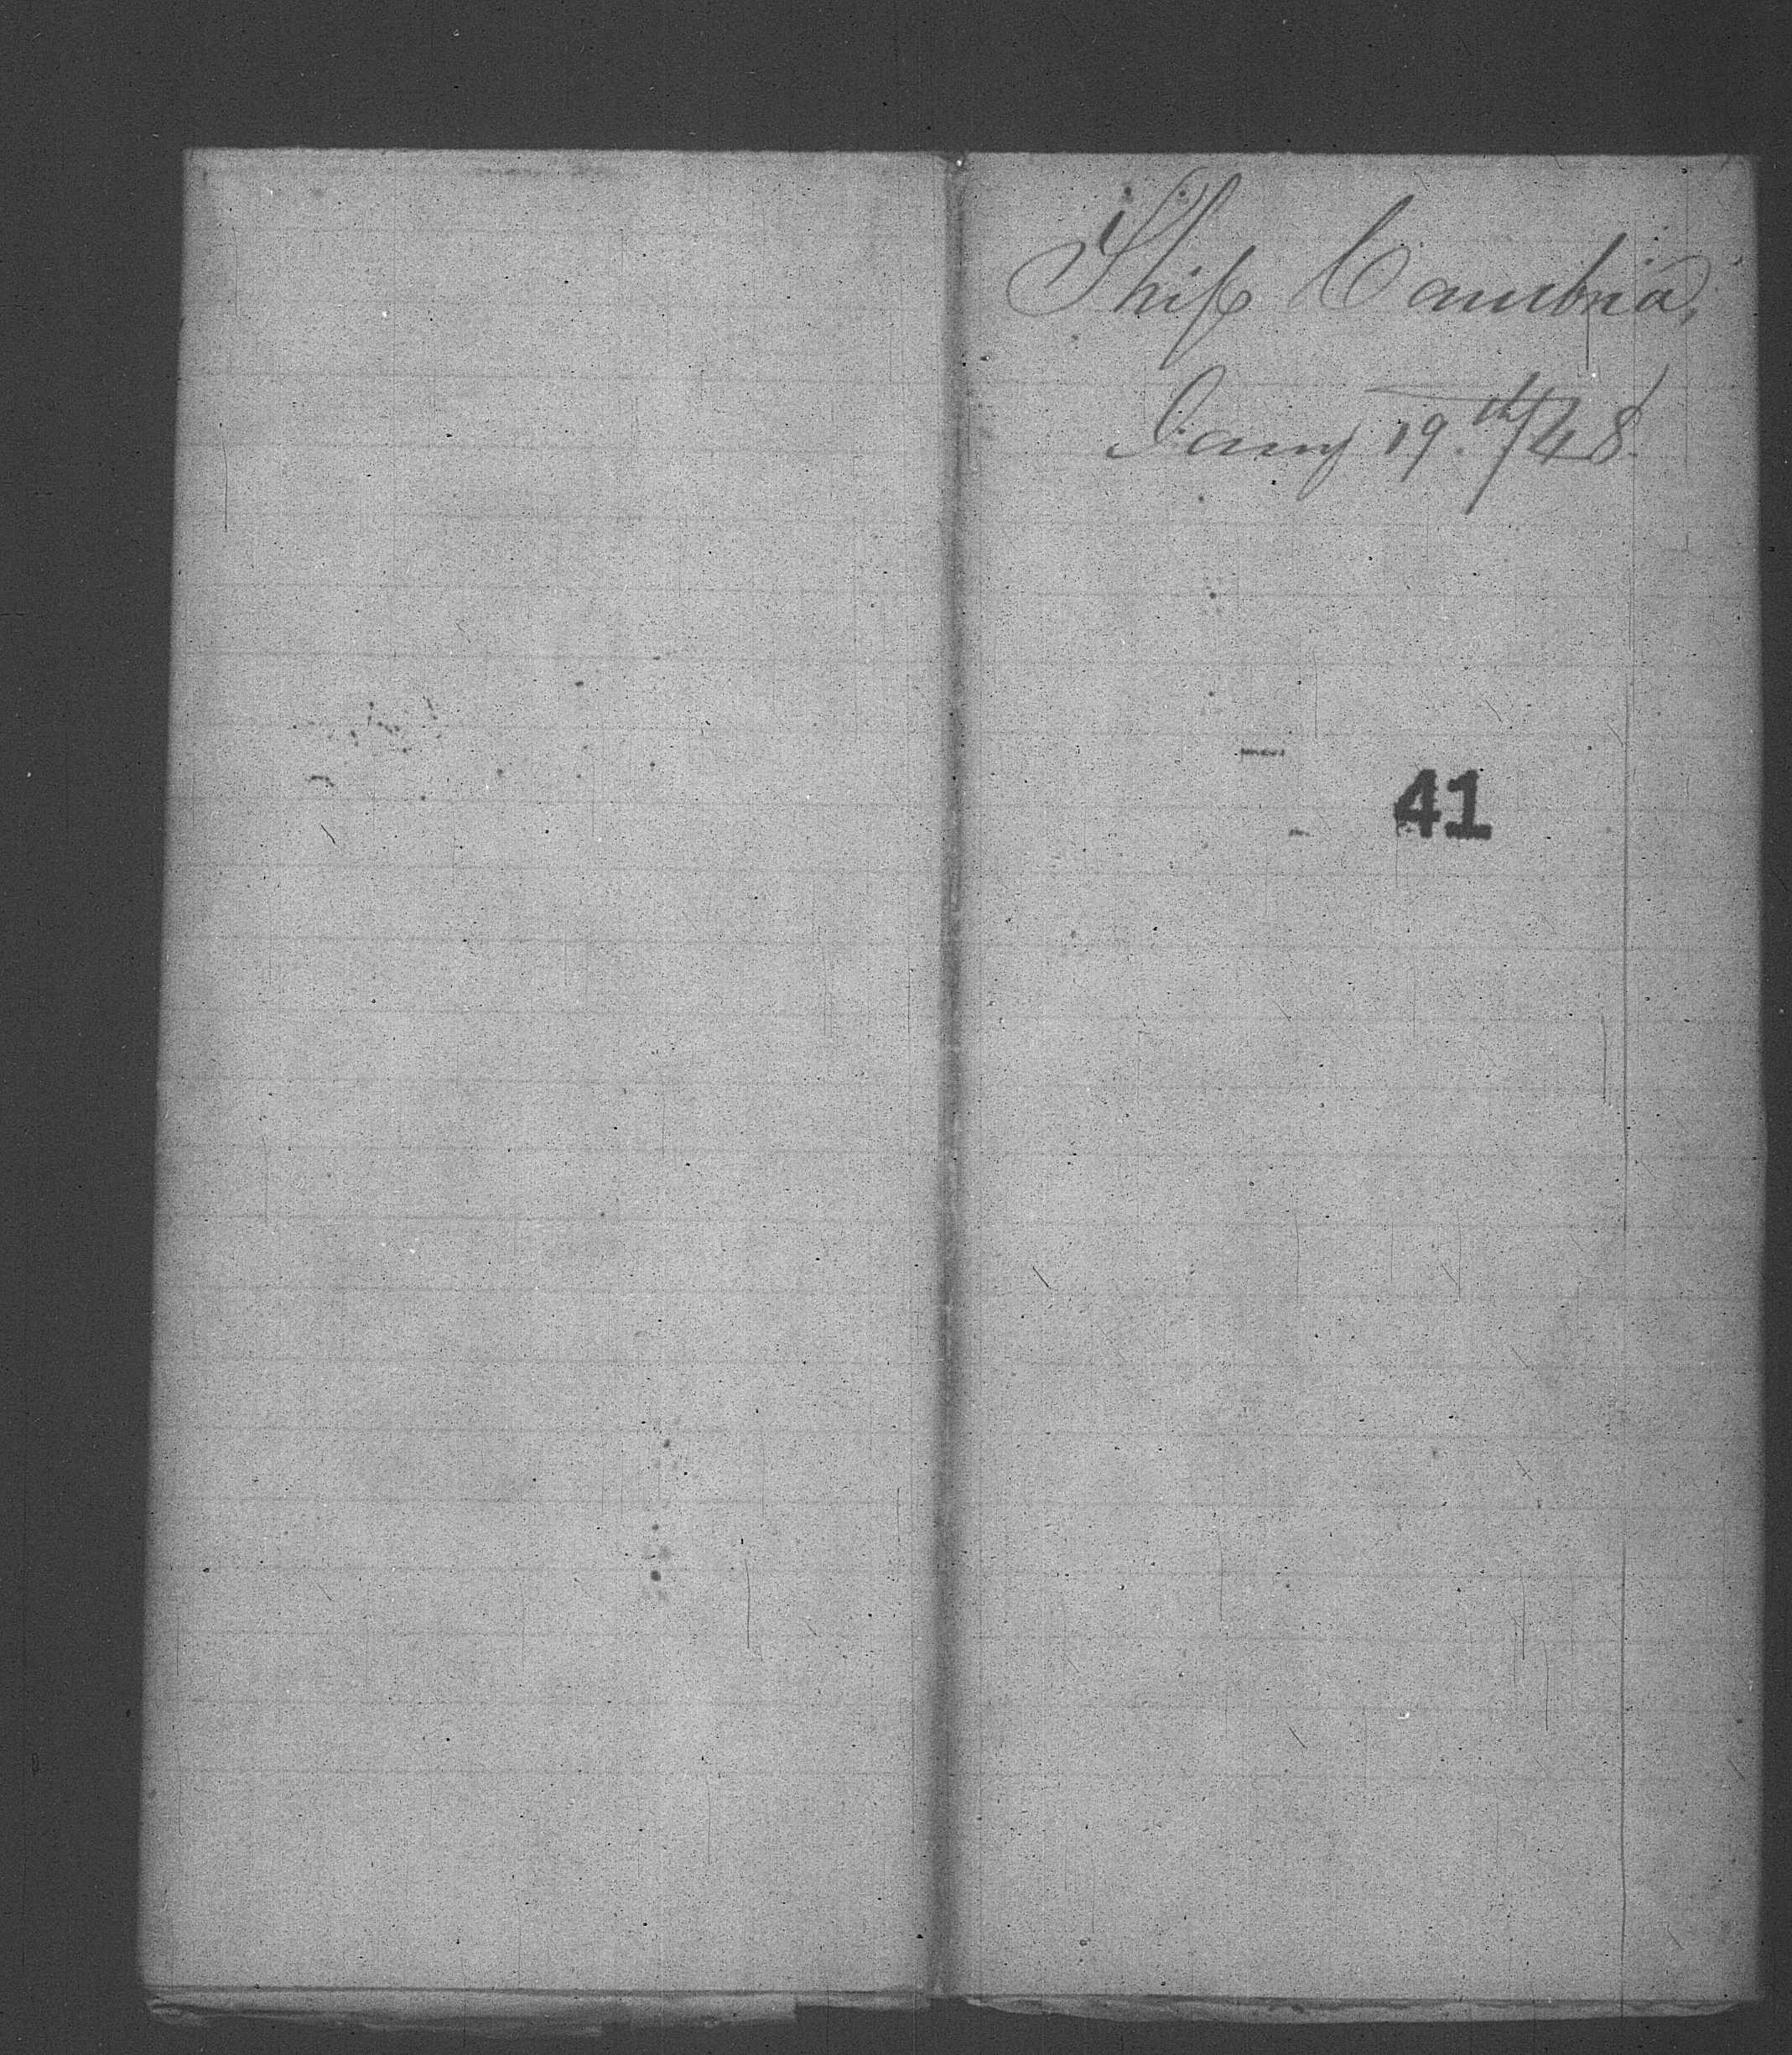 Ship Cambria,
Jany 19.th/48.
41